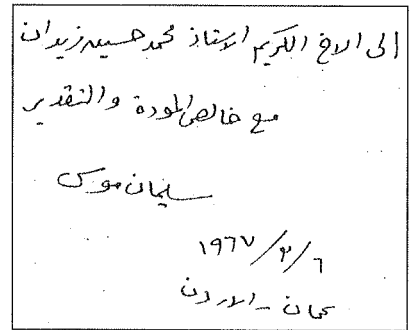 الى الاخ الكريم الاستاذ محمد حسين زيدان
مع خالص المودة والتقدير
سليمان موسى
٦/٣/١٩٦٧
عمان - الاردن